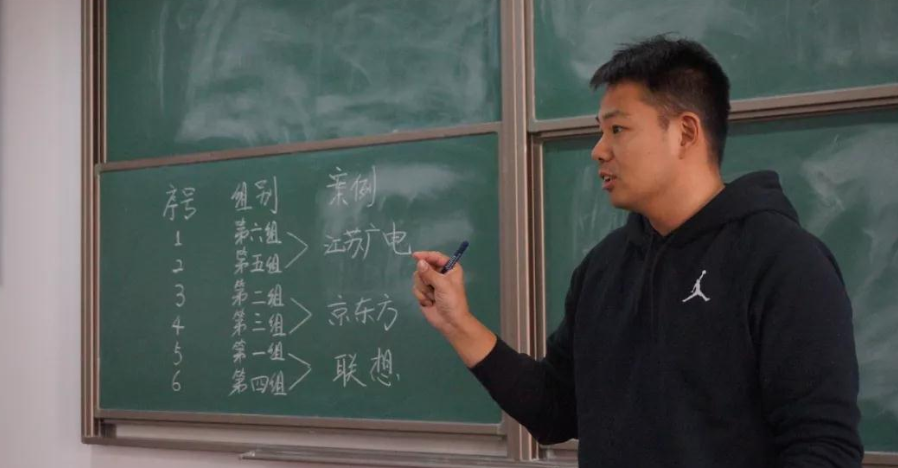 序号 组别 案例
1 第六组
江苏广电
2 第五组
3 第二组
京东方
4 第三组
5 第一组
联想
6 第四组